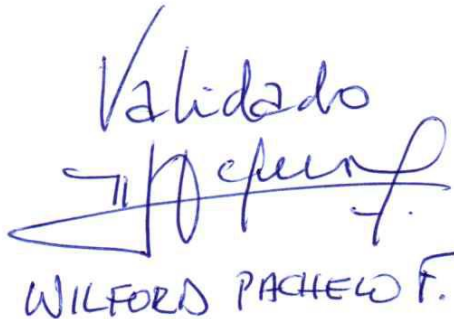 Validado
WILFORD PACHECO F.